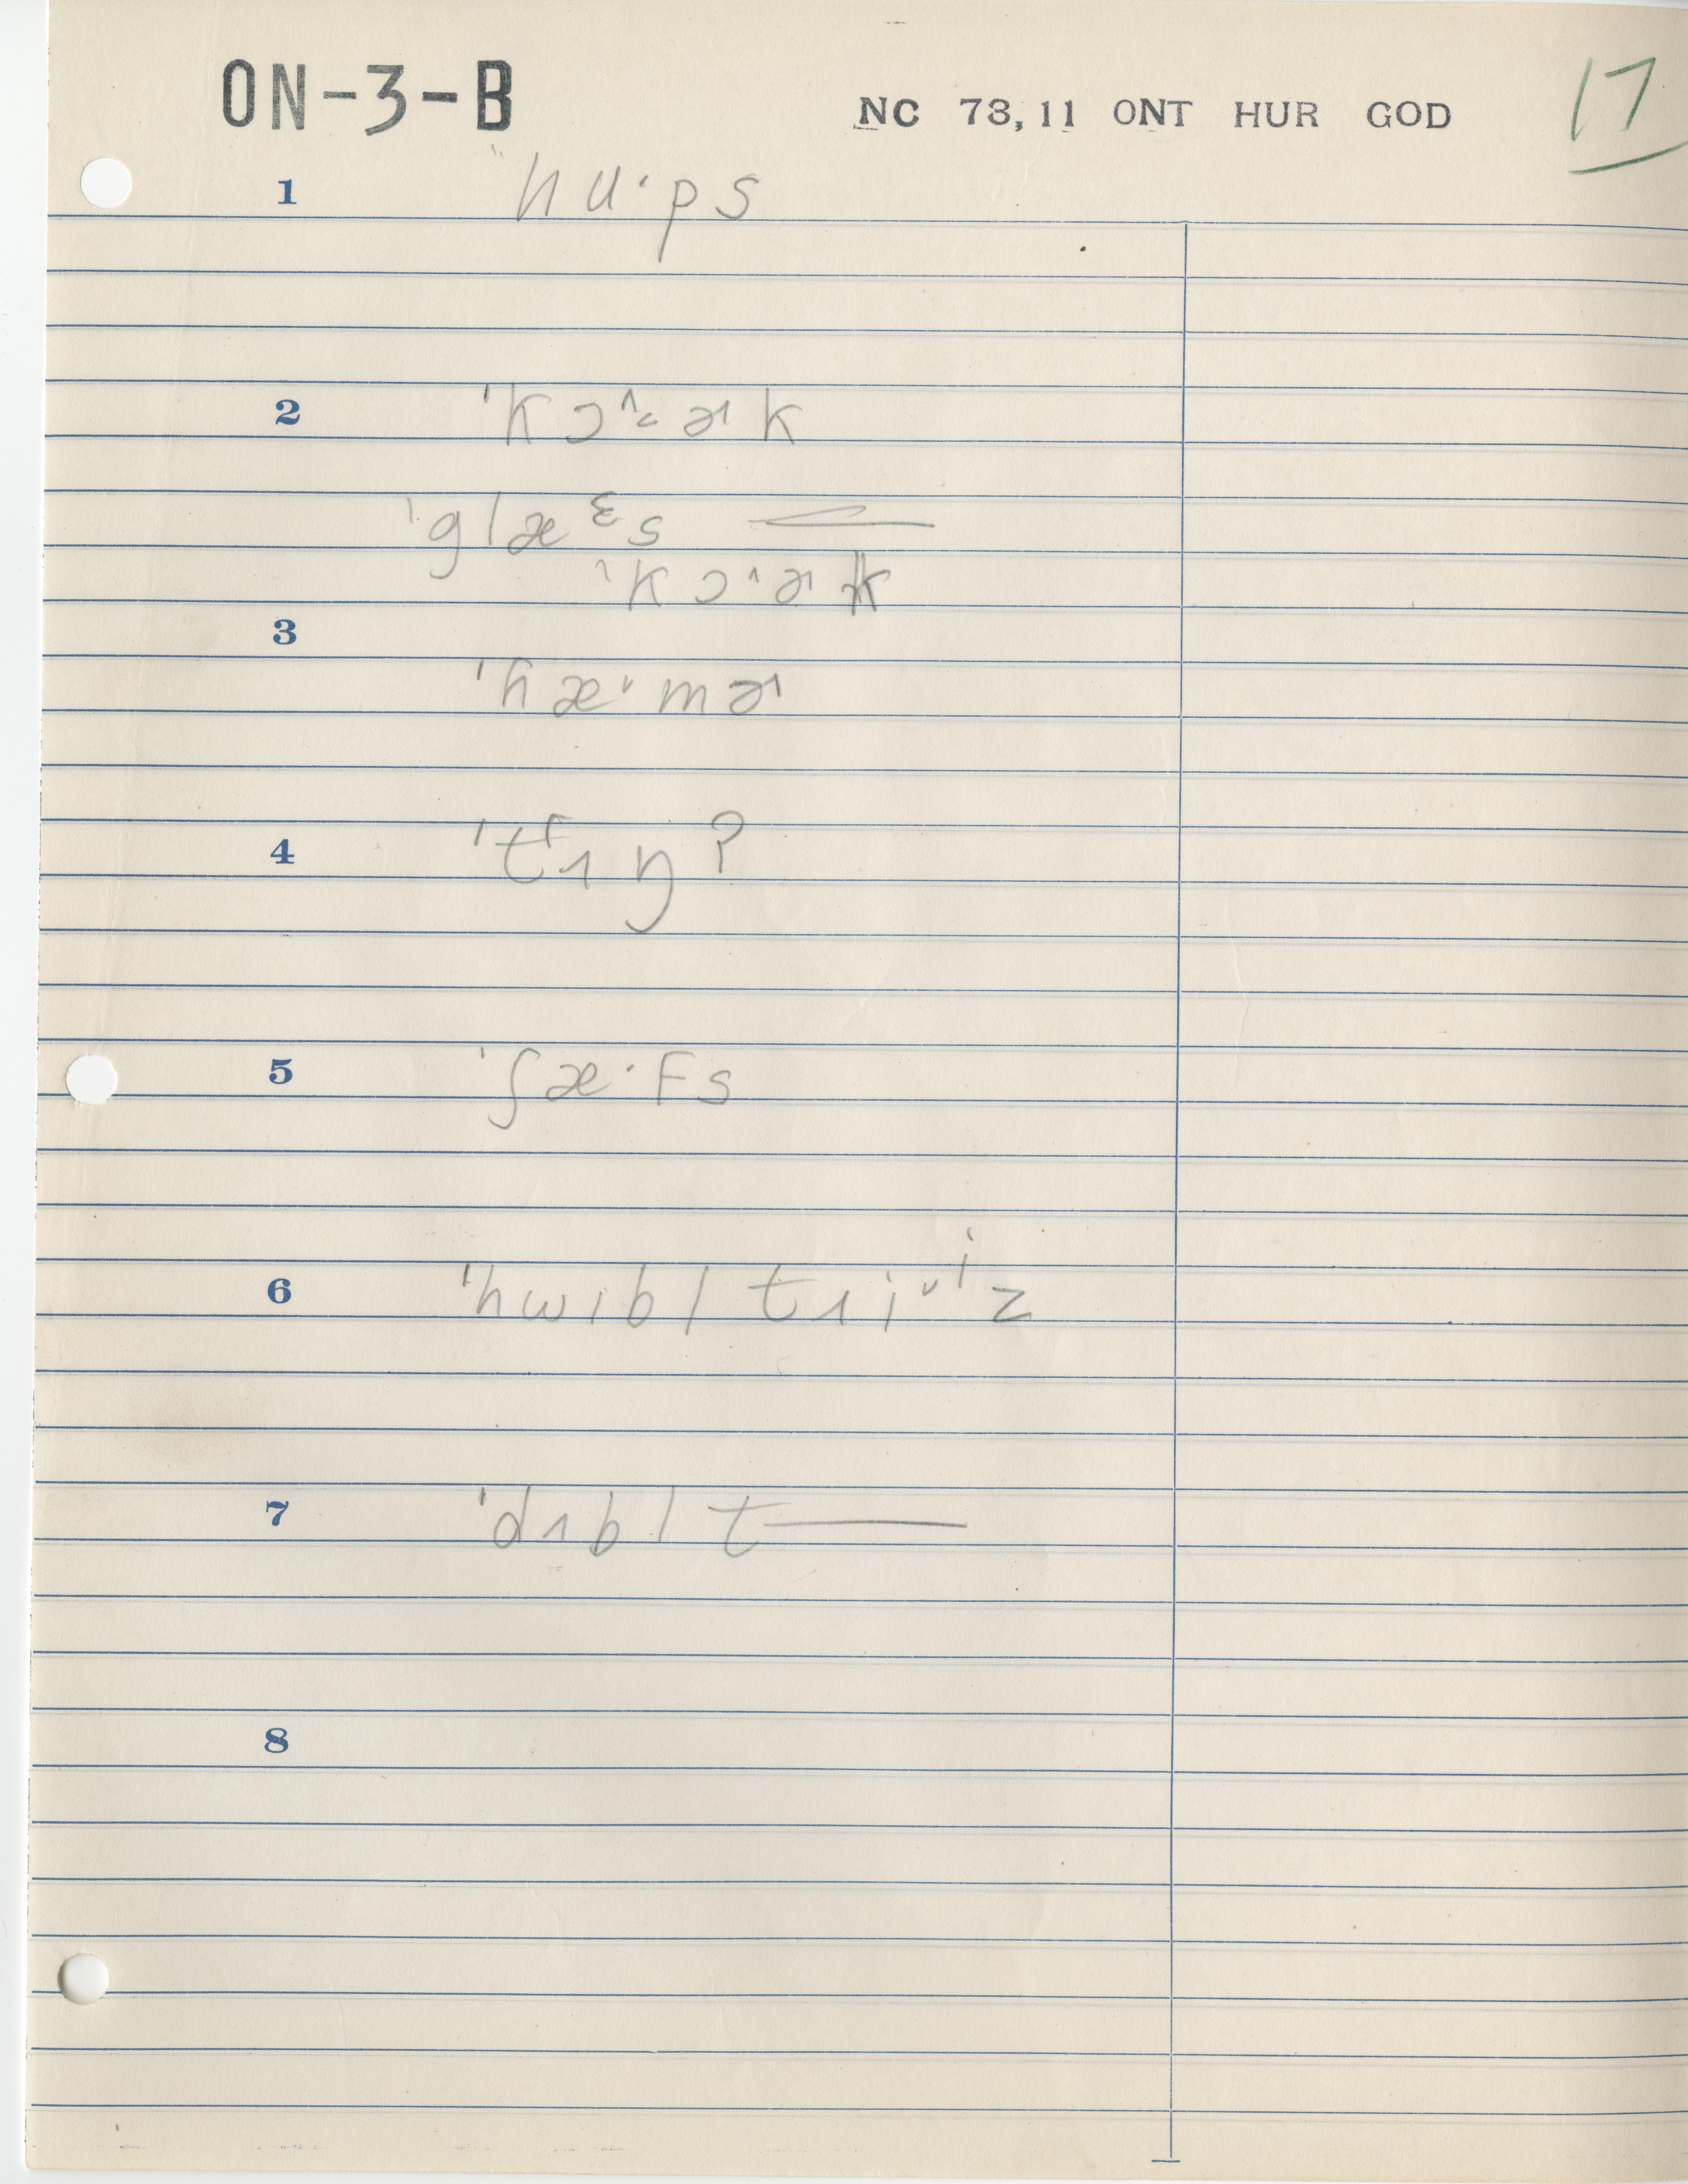 ON-3-B NC 73,11 ONT HUR GOD 17
1 ˈhu·ps
2 ˈkɔ^ˇɚk
ˈglæᵋs
ˈkɔ^ɚk
3
ˈhæˇmɚ
4 ˈtᴦɪŋ?
5 ˈʃæ·Fs
6 ˈhwɪbl trɪiˇlz
7 ˈdɪbl t——
8